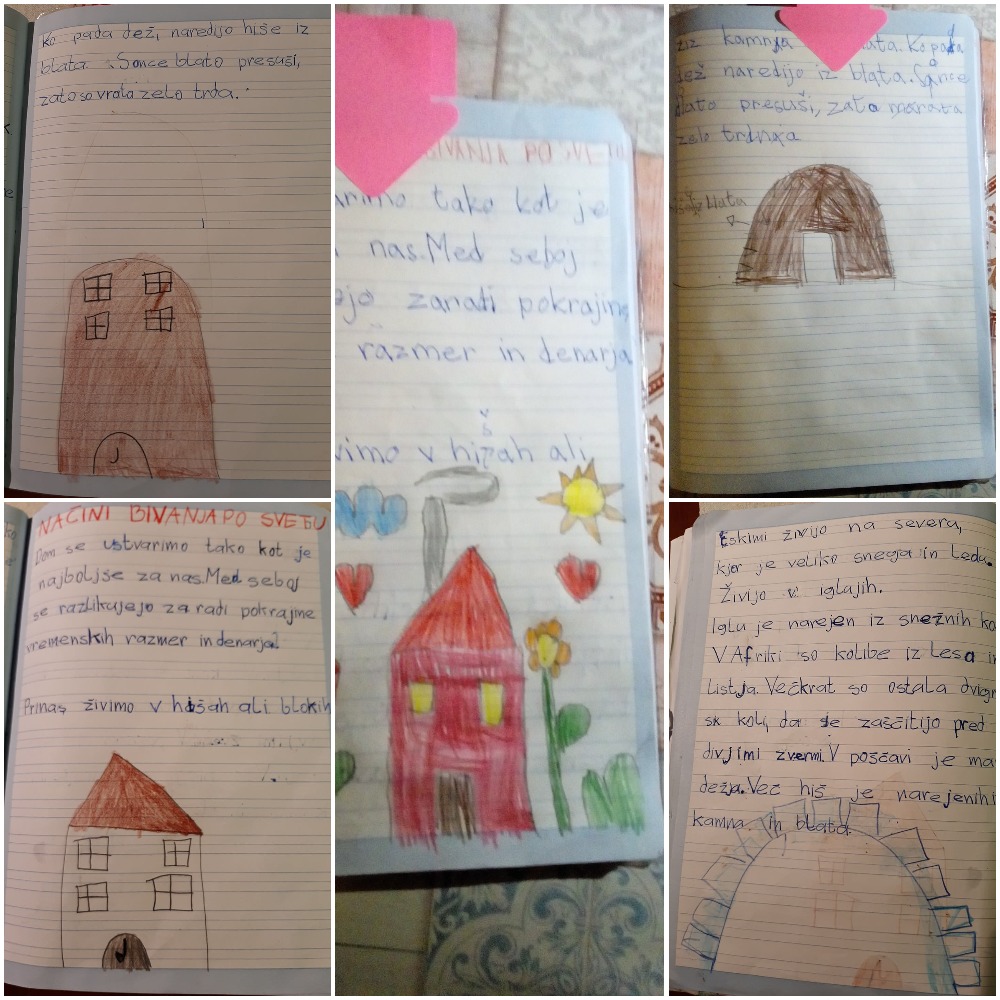 Ko pada dež, naredijo hiše iz
blata. Sonce blato presuši,
zato so vrata zelo trda.
BIVANJA PO SVETU
tako kot je
nas. Med seboj
zaradi pokrajine
razmer in denarja
v hišah ali
kamnja
dež naredijo iz blata. Sonce
blato presuši, zato
zelo
blata
NAČINI BIVANJA PO SVETU
Dom se ustvarimo tako kot je
najboljše za nas. Med seboj
se razlikujejo zaradi pokrajine
vremenskih razmer in denarja
Prinas živimo v hišah ali blokih
Eskimi živijo na severu,
kjer je veliko snega in ledu.
Živijo v iglujih.
Iglu je narejen iz snežnih
V Afriki so kolibe iz lesa
listja. Večkrat so ostala
da se zaščitijo pred
divjimi zvermi. V poščavi je
dežja. Več hiš je narejenih
kamna in blata.